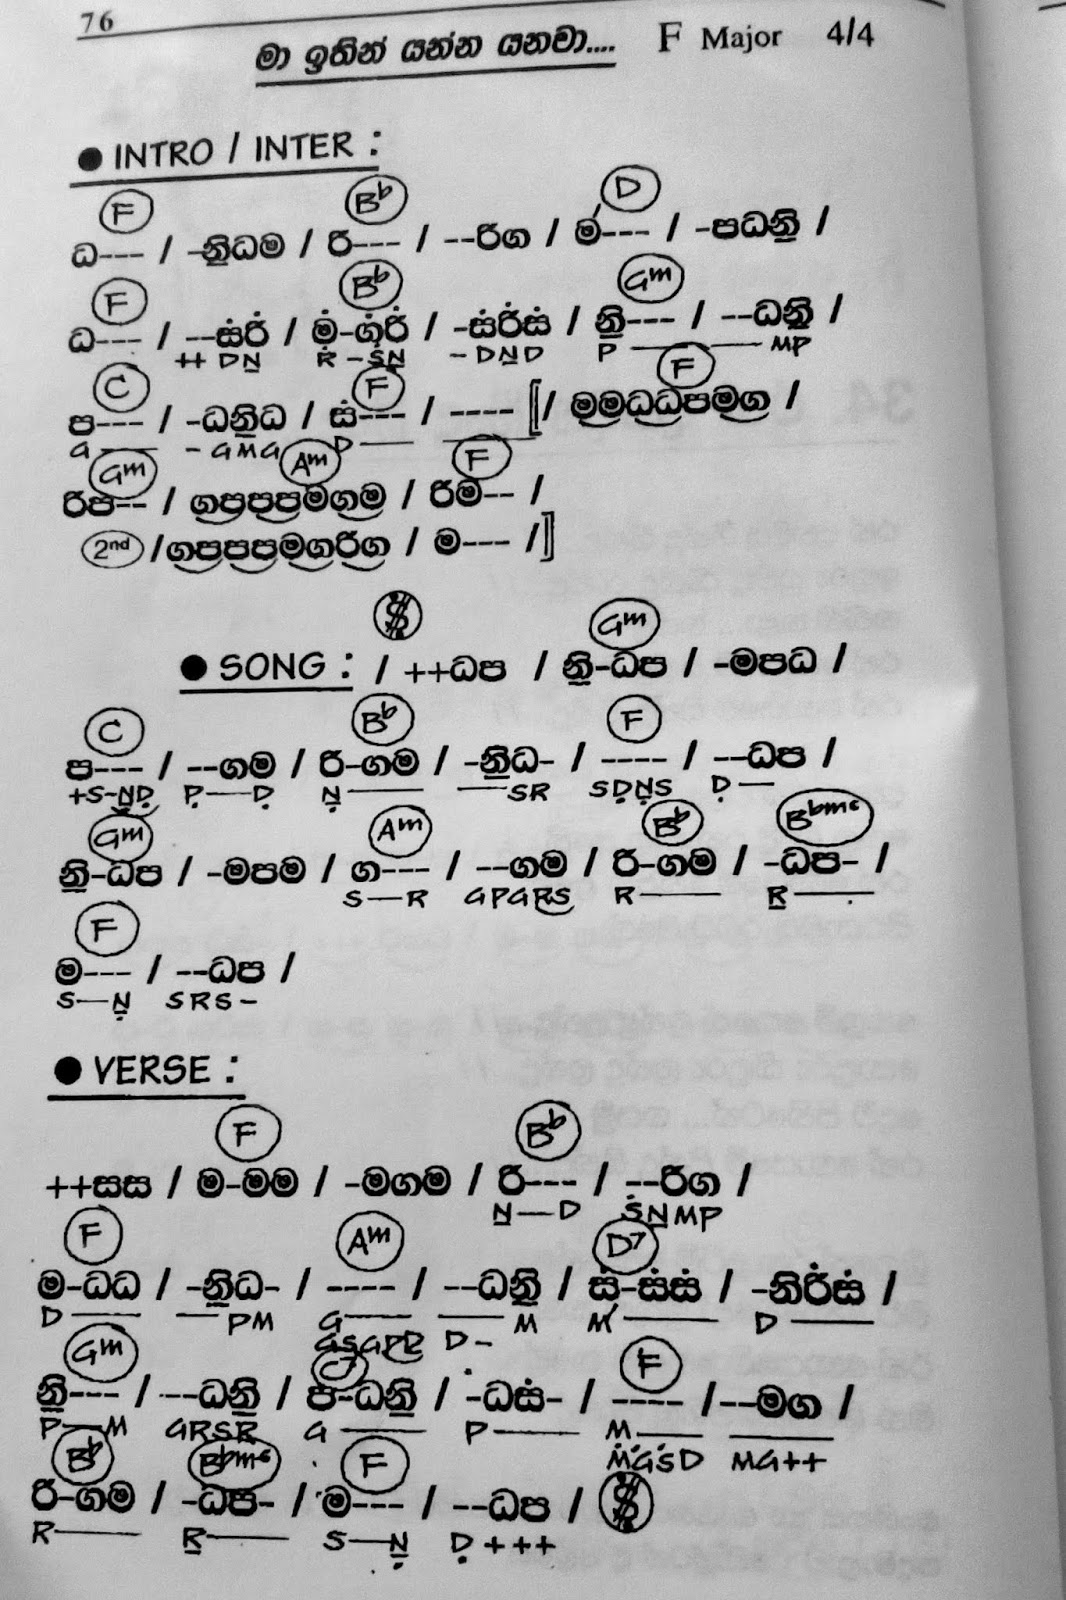 76
මා ඉතින් යන්න යනවා.... F Major 4/4
● INTRO / INTER :
F B♭ D
ධ--- / -නි̱ධම / රි--- / --රිග / ම́--- / -පධනි̱ /
F B♭ Gm
ධ--- / --ස්̇රි̇ / ම̇-ග̇රි̇ / -ස̇රි̇ස̇ / නි̱--- / --ධනි̱ /
++ DṈ Ṙ-ṠṈ - DṈD P —— —— MP
C F F
ප--- / -ධනි̱ධ / ස̇--- / ---- [/ මමධධපමග /
G —— - GMG D ——
Gm Am F
රිප-- / ගපපපමගම / රිම-- /
2nd /ගපපපමගරිග / ම--- /]
$ Gm
● SONG : / ++ධප / නි̱-ධප / -මපධ /
C B♭ F
ප--- / --ගම / රි-ගම / -නි̱ධ- / ---- / --ධප /
+S-ṆḌ P̣—Ḍ Ṇ—— ——SR SḌṆS Ḍ—
Gm Am B♭ B♭m6
නි̱-ධප / -මපම / ග--- / --ගම / රි-ගම / -ධප- /
S—R GPGRS R—— R̲——
F
ම--- / --ධප /
S—Ṇ SRS-
● VERSE :
F B♭
++සස / ම-මම / -මගම / රි--- / --රිග /
N̲—D ṠN̲MP
F Am D7
ම-ධධ / -නි̱ධ- / ---- / --ධනි̱ / ස̇-ස̇ස̇ / -නිරි̇ස̇ /
D —— ——PM G—— ——M Ḿ—— D ——
GSGPR D-
Gm C7 F
නි̱--- / ---ධනි̱ / ප-ධනි̱ / -ධස̇- / ---- /--මග /
P—M GRSR G —— P—— M—— ——
ṀĠṠD MG++
B♭ B♭m6 F
රි-ගම / -ධප- / ම--- / --ධප / $
R—— R̲—— S—Ṇ Ḍ+++